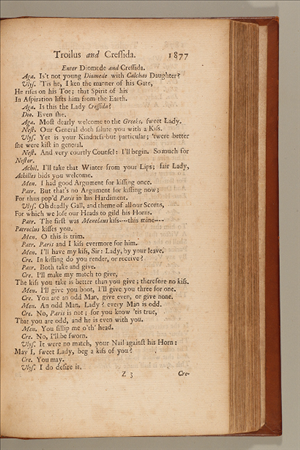 Troilus and Cressida. 1877
Enter Diomede and Cressida.
Aga. Is't not young Diomede with Calchas Daughter?
Ulys. 'Tis he, I ken the manner of his Gate,
He rises on his Toe; that Spirit of his
In Aspiration lifts him from the Earth.
Aga. Is this the Lady Cressida?
Dio. Even she.
Aga. Most dearly welcome to the Greeks, sweet Lady.
Nest. Our General doth salute you with a Kiss.
Ulys. Yet is your Kindness but particular; 'twere better
she were kist in general.
Nest. And very courtly Counsel: I'll begin. So much for
Nestor.
Achil. I'll take that Winter from your Lips; fair Lady,
Achilles bids you welcome.
Men. I had good Argument for kissing once.
Patr. But that's no Argument for kissing now;
For thus pop'd Paris in his Hardiment.
Ulys. Oh deadly Gall, and theme of all our Scorns,
For which we lose our Heads to gild his Horns.
Patr. The first was Menelaus kiss---this mine---
Patroclus kisses you.
Men. O this is trim.
Patr. Paris and I kiss evermore for him.
Men. I'll have my kiss, Sir: Lady, by your leave.
Cre. In kissing do you render, or receive?
Patr. Both take and give.
Cre. I'll make my match to give,
The kiss you take is better than you give; therefore no kiss.
Men. I'll give you boot, I'll give you three for one.
Cre. You are an odd Man, give even, or give none.
Men. An odd Man, Lady? every Man is odd.
Cre. No, Paris is not; for you know 'tis true,
That you are odd, and he is even with you.
Men. You fillip me o'th' head.
Cre. No, I'll be sworn.
Ulys. It were no match, your Nail against his Horn:
May I, sweet Lady, beg a kiss of you?
Cre. You may.
Ulys. I do desire it.
Z 3 Cre-